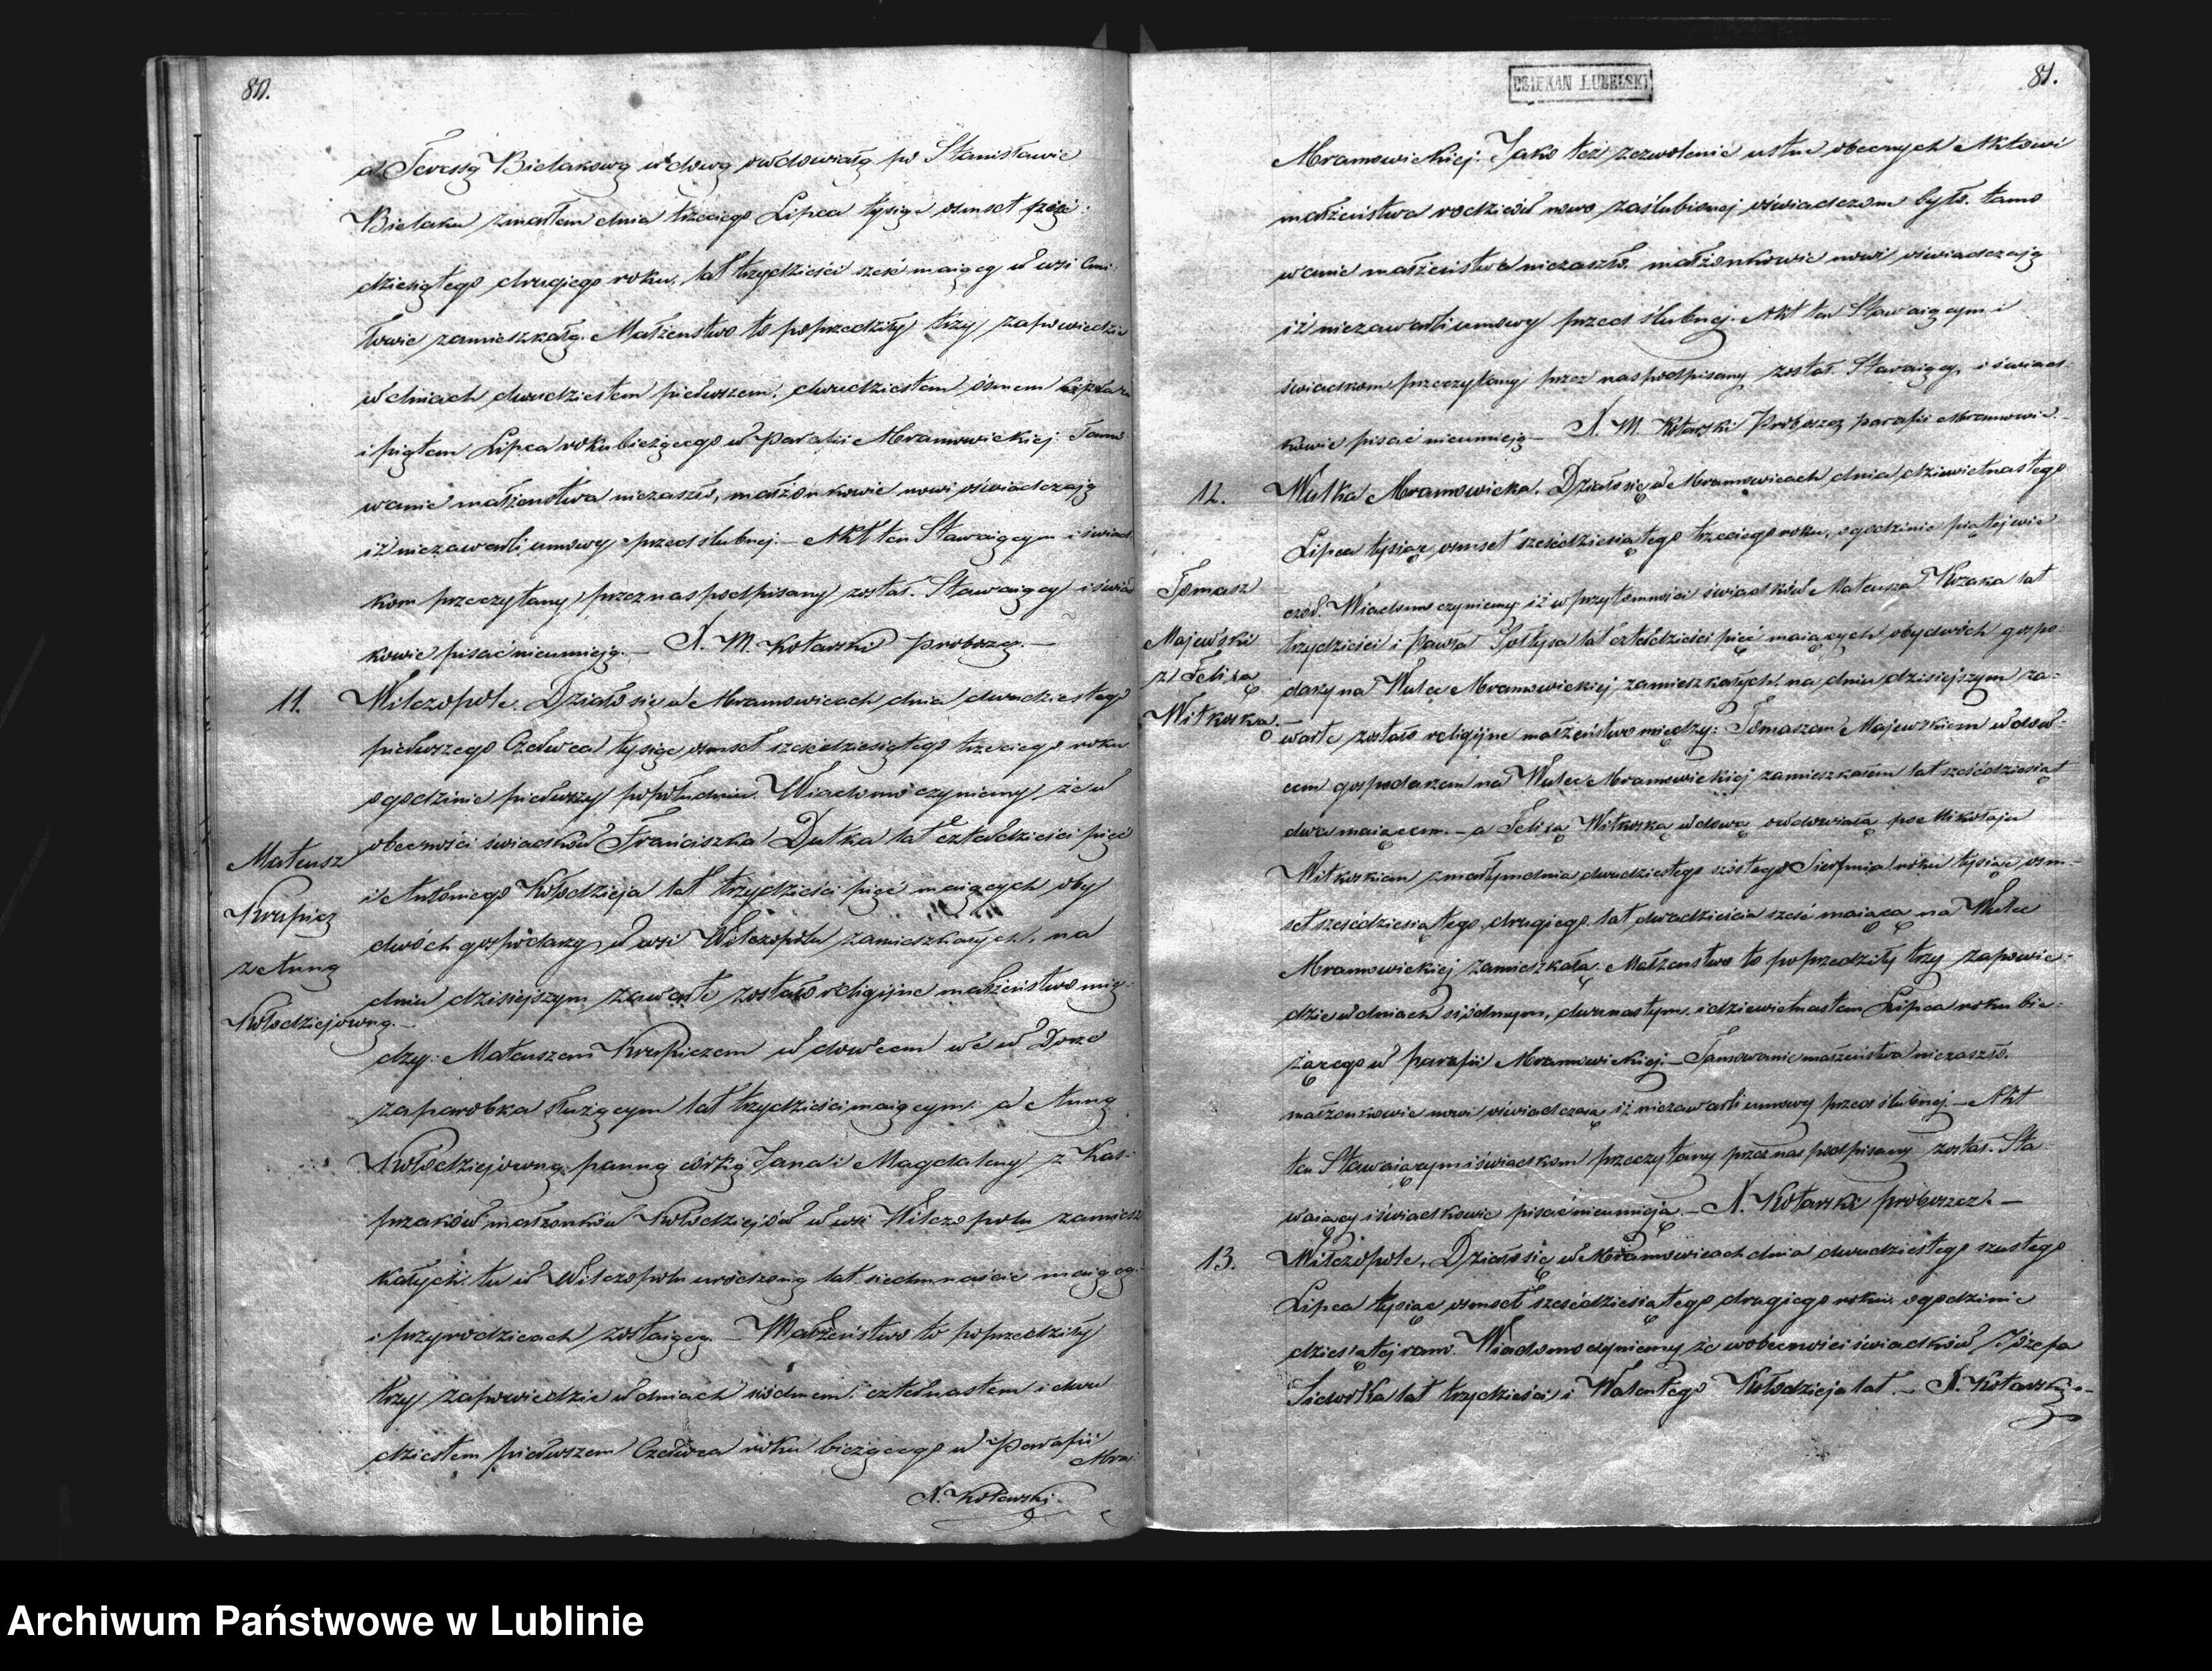 80.
a Teressą Bielakową wdową owdowiałą po Stanisławie
Bielaku zmarłem dnia trzeciego Lipca tysiąc osmset sześć:
dziesiątego drugiego roku, lat trzydzieści sześć maiącą w wsi Ćmi:
łowie zamieszkałą. Małżenstwo to poprzedziły trzy zapowiedzie
w dniach dwudziestem pierwszem, dwudziestem ósmem
i piątem Lipca roku bieżącego w Parafii Abramowickiej. Tamo
wanie małżenstwa niezaszło, małżonkowie nowi oświadczają
iż niezawarli umowy przedslubnej. – Akt ten Stawaiącym i świad
kom przeczytany przez nas podpisany został. Stawaiący i świad
kowie pisać nieumieją. – X. M. Kotarski Proboszcz. –
11. Wilczopole. Działo się w Abramowicach dnia dwudziestego
pierwszego Czerwca tysiąc osmset sześćdziesiątego trzeciego roku
o godzinie pierwszy popołudniu. Wiadomo czyniemy, że w
obecności świadków Franciszka Dutka lat czterdzieści pięć
Mateusz
i Antoniego Kołodzieja lat trzydzieści pięć maiących oby
Krupicz
dwóch gospodarzy w wsi Wilczopolu zamieszkałych, na
z Anną
dniu dzisiejszym zawarte zostało religijne małżeństwo mię:
Kołodziejowną. –
dzy: Mateuszem Krupiczem wdowcem we w
za parobka służącym lat trzydzieści maiącym: a Anną
Kołodziejowną panną córką Jana i Magdaleny z Kas:
przaków małżonków Kołodziejów w wsi Wilczopolu zamiesz
kałych tu w Wilczopolu urodzoną lat siedmnaście maiącą:
i przy rodzicach zostaiącą. – Małżeństwo to poprzedziły
trzy zapowiedzie w dniach siódmem: czternastem i dwu
dziestem pierwszem Czerwca roku bieżącego w Parafii
Abra:
X. Kotarski
DZIEKAN LUBELSKI
81.
Abramowickiej. Jako też zezwolenie ustne obecnych Aktowi
małżeństwa rodziców nowo zaślubionej oświadczone było. tamo
wanie małżeństwa niezaszło. małżonkowie nowi oświadczają
iż niezawarli umowy przed ślubnej. Akt ten Stawaiącym i
świadkom przeczytany przez nas podpisany został. Stawaiący i świad:
kowie pisać nieumieją – X. M. Kotarski Proboszcz parafii Abramowic:
12. Wulka Abramowicka. Działo się w Abramowicach dnia dziewietnastego
Lipca tysiąc osmset sześćdziesiątego trzeciego roku, o godzinie piątej wie
Tomasz
czor. Wiadomo czyniemy iż w przytomności świadków Mateusza Kozaka lat
Majewski
trzydzieści i Pawła Sołtysa lat czterdzieści pięć maiących obydwóch gospo
z Felixą
darzy na Wulce Abramowickiej zamieszkałych na dniu dzisiejszym za:
Witkoską. –
warte zostało religijne małżeństwo między: Tomaszem Majewskiem wdow:
cem gospodarzem na Wulce Abramowickiej zamieszkałem lat sześćdziesiąt
dwa maiącem. – a Felixą Witkoską wdową owdowiałą po Mikołaju
Witkoskiem zmarłym dnia dwudziestego szóstego Sierpnia roku tysiąc osm –
set sześćdziesiątego drugiego lat dwadzieścia sześć maiąca na Wulce
Abramowickiej zamieszkałą. Małzenstwo to poprzedziły trzy zapowie:
dzie w dniach siódmym, dwunastym, i dziewietnastem Lipca roku bie:
żącego w parafii Abramowickiej. – Tamowanie małżeństwa niezaszło.
małżonkowie nowi oświadczają iż niezawarli umowy przed ślubnej. – Akt
ten Stawaiącym i świadkom przeczytany przez nas podpisany został. Sta
waiący i świadkowie pisać nieumieją. – X. Kotarski proboszcz. –
13. Wilczopole. Działo się w Abramowicach dnia dwudziestego szustego
Lipca tysiąc osmset sześćdziesiątego drugiego roku o godzinie
dziesiątej rano. Wiadomo czyniemy że w obecności świadków Józefa
Sidorka lat trzydzieści i Walentego Kołodzieja lat. – X. Kotarski –
Archiwum Państwowe w Lublinie